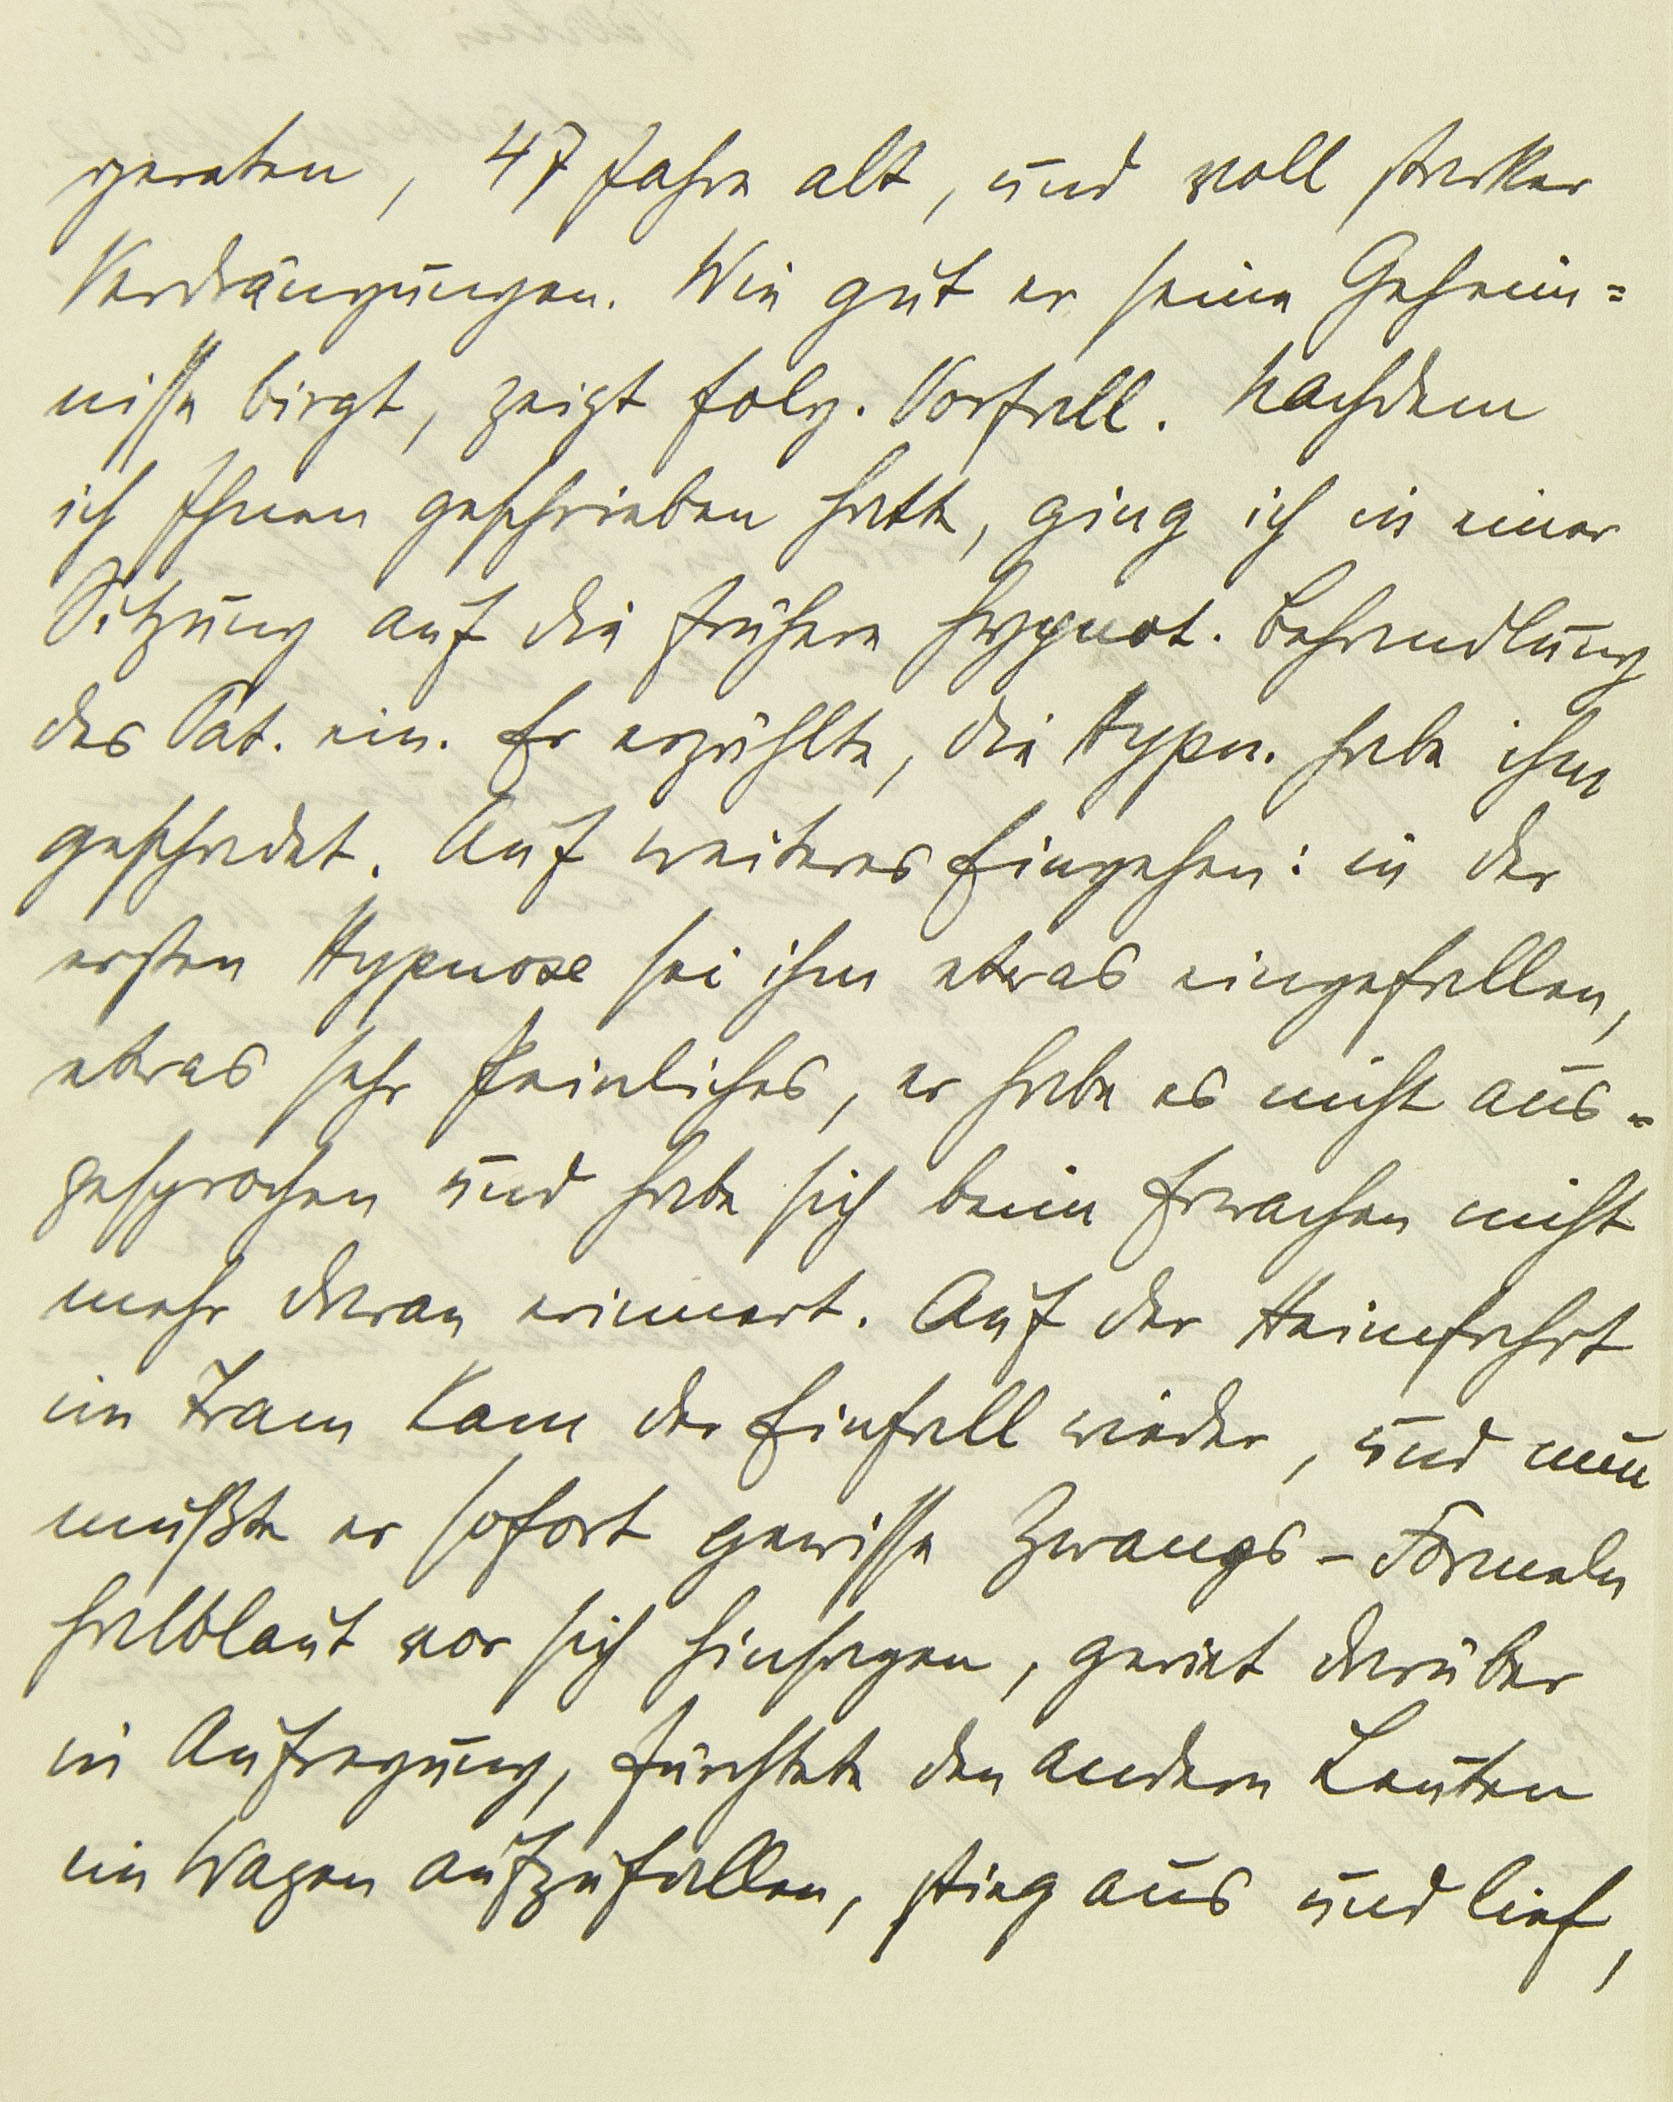 geraten, 47 Jahre alt, und voll starker
Verdrängungen. Wie gut er seine Geheim=
nisse birgt, zeigt folg. Vorfall. Nachdem
ich Ihnen geschrieben hatte, ging ich in einer
Sitzung auf die frühere hypnot. Behandlung
des Pat. ein. Er erzählte, die Hypn. habe ihm
geschadet. Auf weiteres Eingehen: in der
ersten Hypnose sei ihm etwas eingefallen,
etwas sehr Peinliches, er habe es nicht aus=
gesprochen und habe sich beim Erwachen nicht
mehr daran erinnert. Auf der Heimfahrt
im Tram kam der Einfall wieder, und nun
mußte er sofort gewisse Zwangs-Formeln
halblaut vor sich hinsagen, geriet darüber
in Aufregung, fürchtete den andern Leuten
im Wagen aufzufallen, stieg aus und lief,